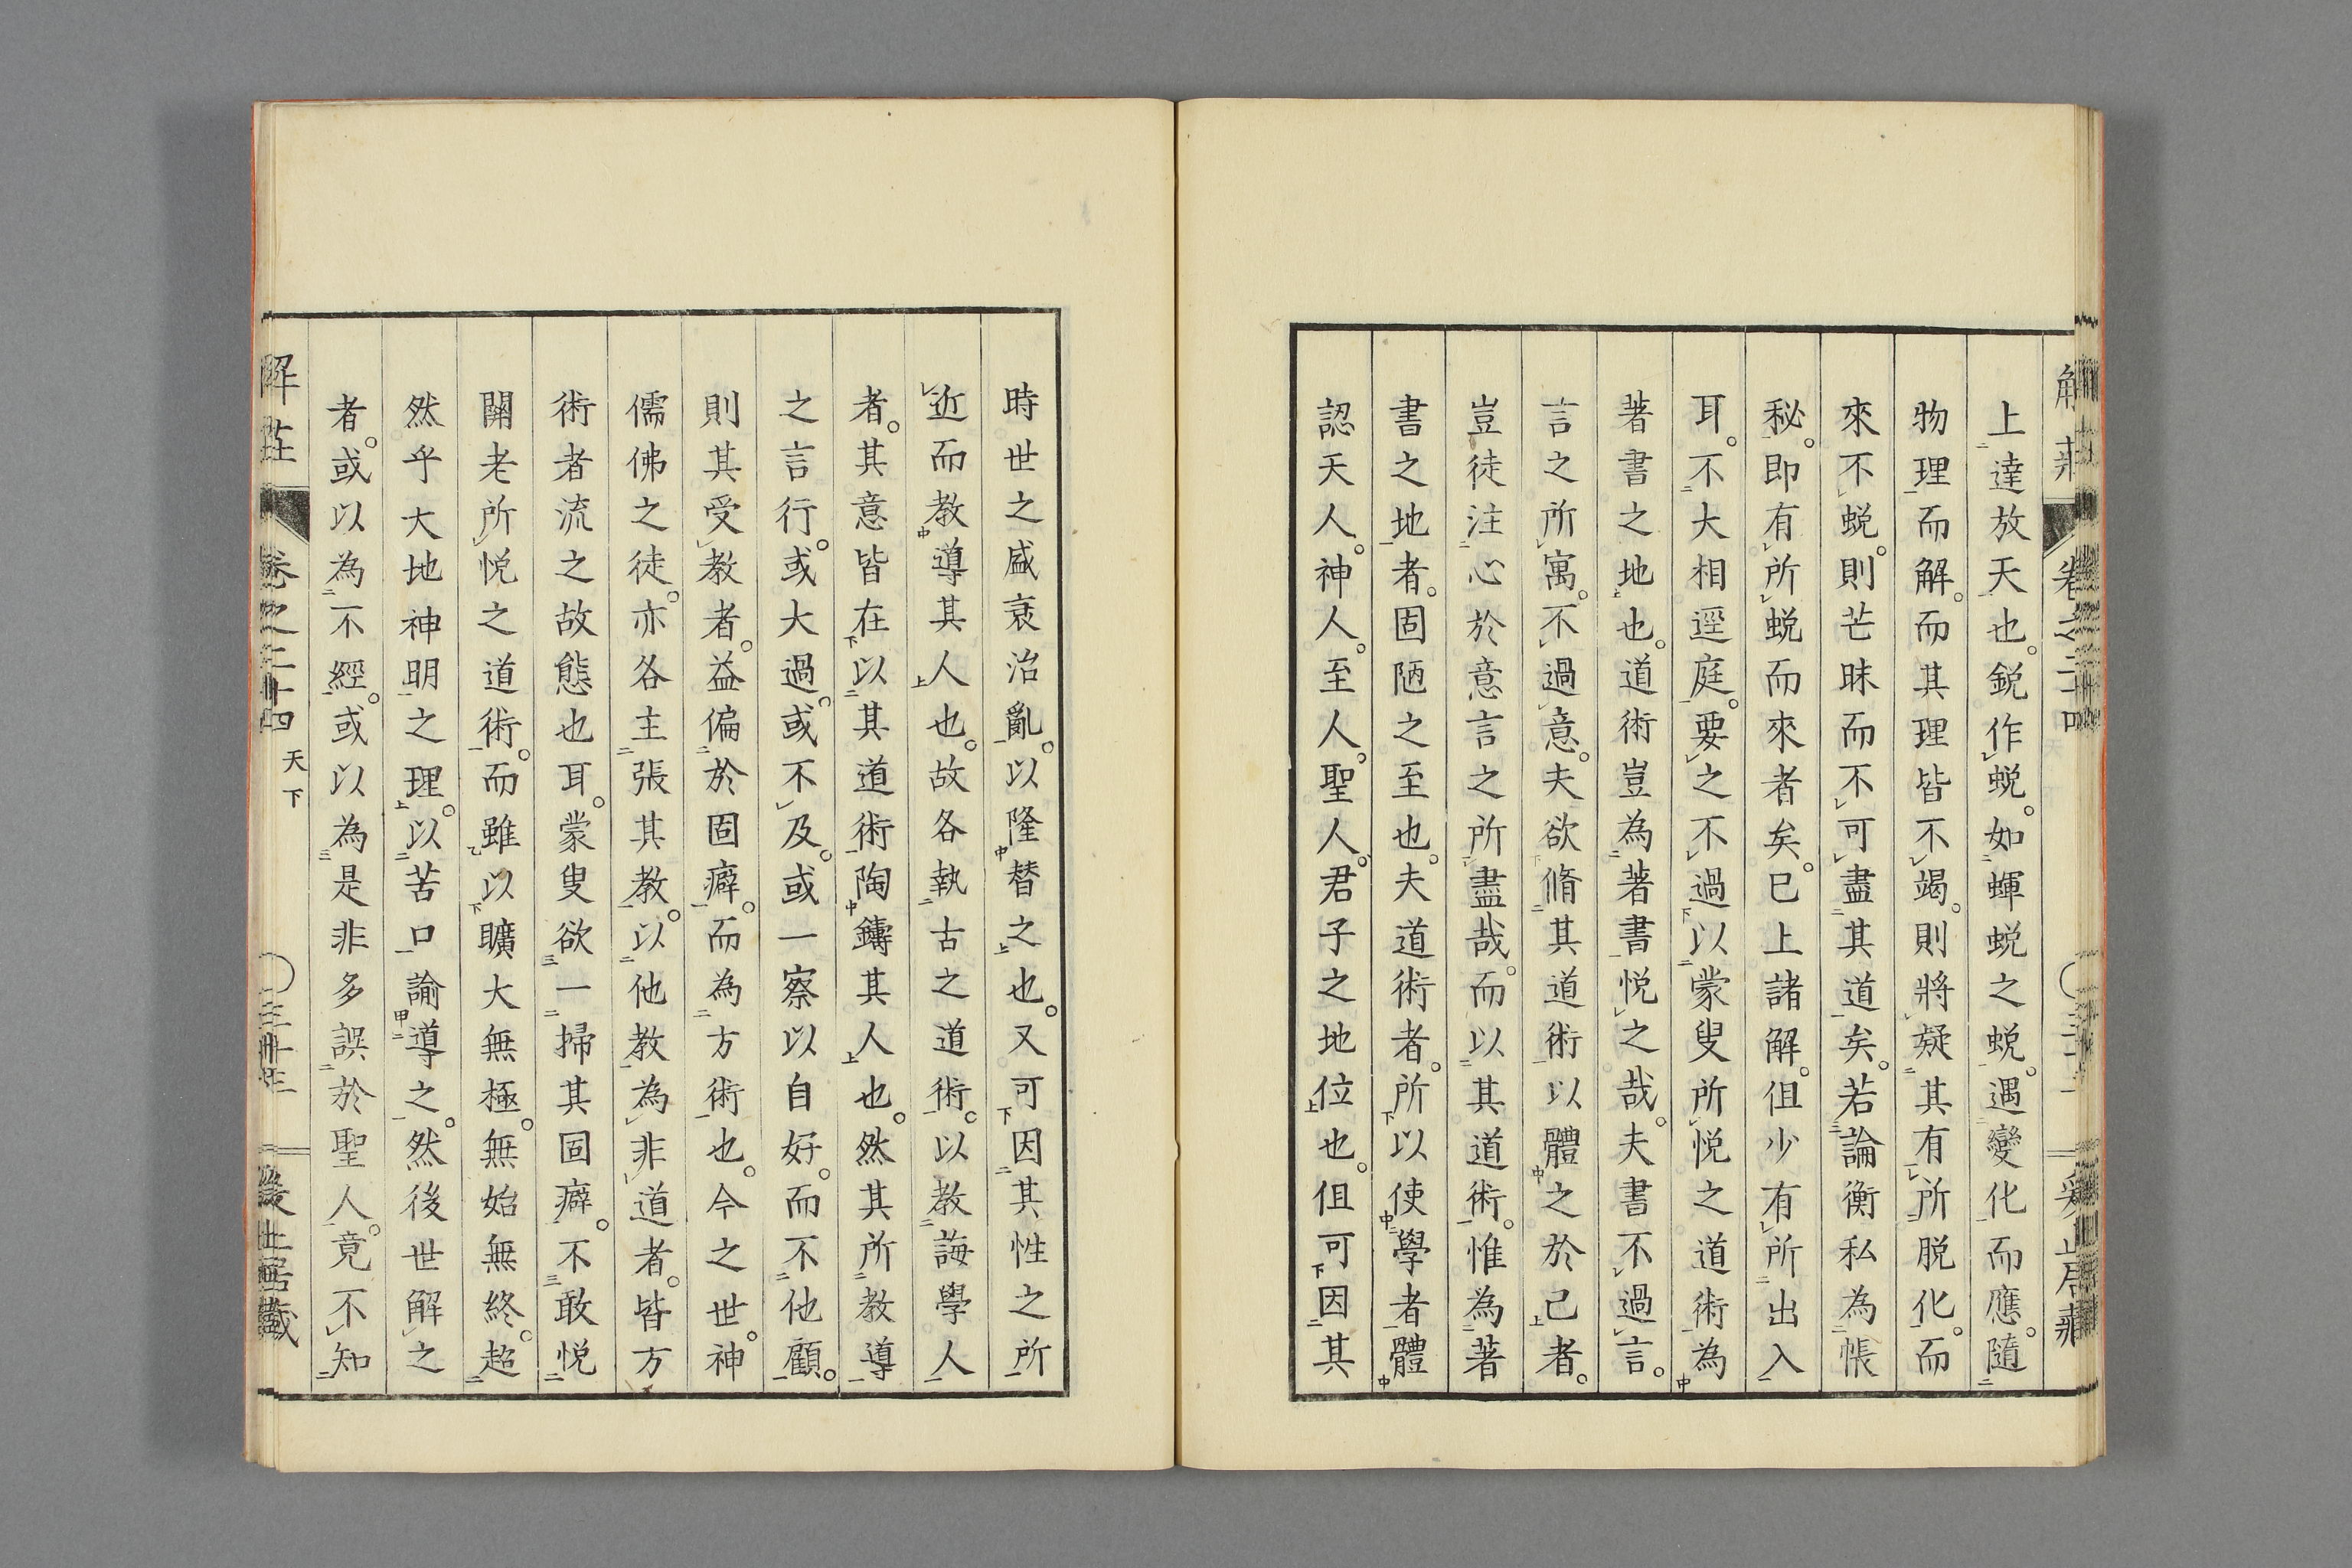 上達放天也。鋭作蛻。如蟬蛻之蛻。遇變化而應。隨
物理而解。而其理皆不竭。則將疑其有所脱化。而
來不蛻。則芒昧而不可盡其道矣。若論衡私為帳
秘。即有所蛻而來者矣。已上諸解。但少有所出入
耳。不大相逕庭。要之不過以蒙叟所悦之道術為
著書之地也。道術豈為著書悦之哉。夫書不過言。
言之所寓。不過意。夫欲脩其道術以體之於己者。
豈徒注心於意言之所盡哉。而以其道術。惟為著
書之地者。固陋之至也。夫道術者。所以使學者體
認天人。神人。至人。聖人。君子之地位也。但可因其
時世之盛衰治亂。以隆替之也。又可因其性之所
近而教導其人也。故各執古之道術。以教誨學人
者。其意皆在以其道術陶鑄其人也。然其所教導
之言行。或大過。或不及。或一察以自好。而不他顧。
則其受教者。益偏於固癖。而為方術也。今之世。神
儒佛之徒。亦各主張其教。以他教為非道者。皆方
術者流之故態也耳。蒙叟欲一掃其固癖。不敢悦
關老所悦之道術。而雖以曠大無極。無始無終。超
然乎大地神明之理。以苦口諭導之。然後世解之
者。或以為不經。或以為是非多誤於聖人。竟不知
解莊 卷之二十四 天下 三十三